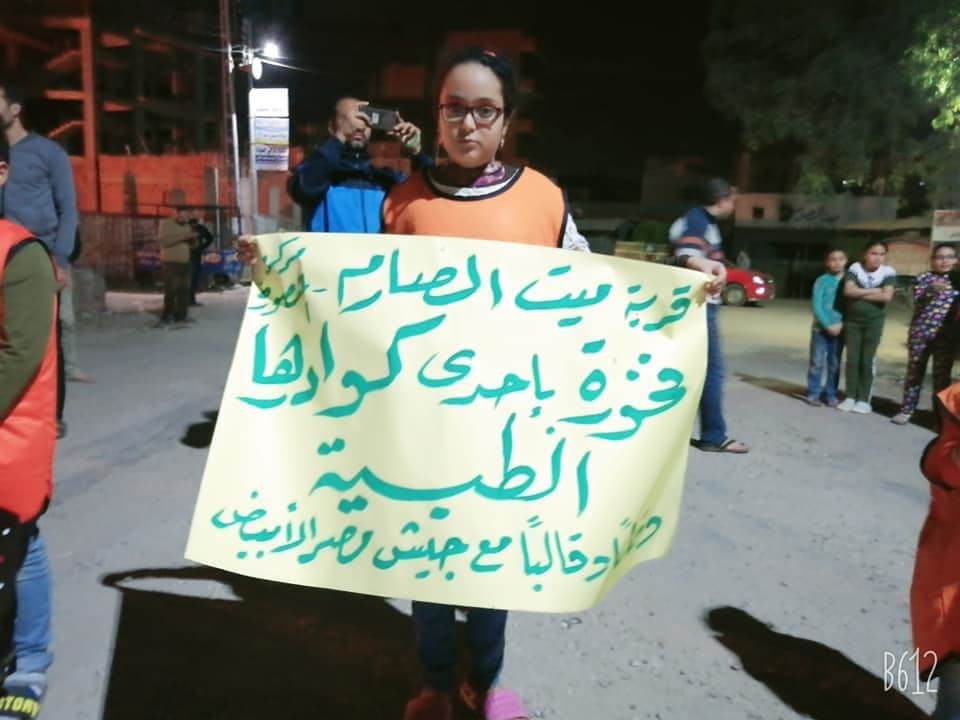 قرية ميت الصارم - مركز المنصورة
فخورة بإحدى كوادرها
الطبية
وقالبًا مع جيش مصر الأبيض
B612